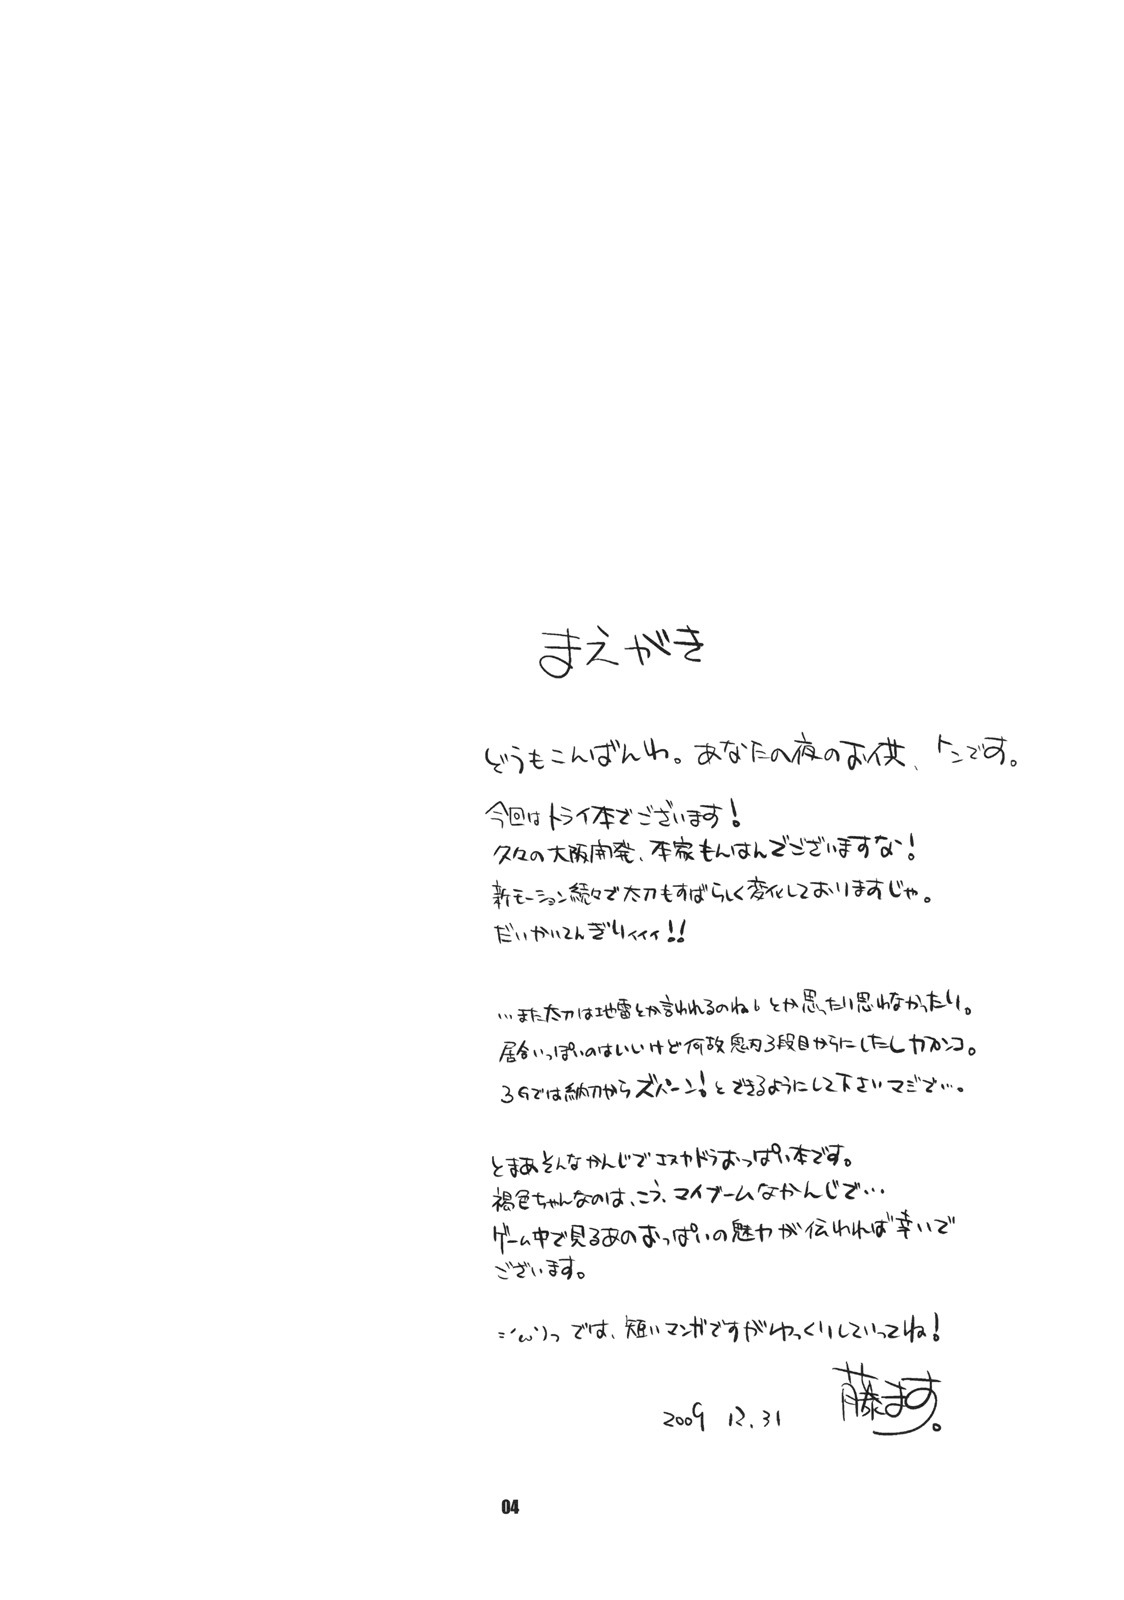 まえがき
どうもこんばんわ。あなたの夜のお供、トンです。
今回はトライ本でございます!
久々の大阪開発、本家もんはんでございますな!
新モーション続々で太刀もすばらしく変化しておりますじゃ。
だいかいてんぎりィィィ!!
…また太刀は地雷とか言われるのね。とか思ったり思わなかったり。
居合いっぽいのはいいけど何故鬼刃3段目からにしたしカプンコ。
3Gでは納刀からズバーン!とできるようにして下さいマジで…。
とまあそんなかんじでエスカドラおっぱい本です。
褐色ちゃんなのは、こう、マイブームなかんじで…
ゲーム中で見るあのおっぱいの魅力が伝われば幸いで
ございます。
では、短いマンガですがゆっくりしていってね!
藤ます。
2009 12.31
04